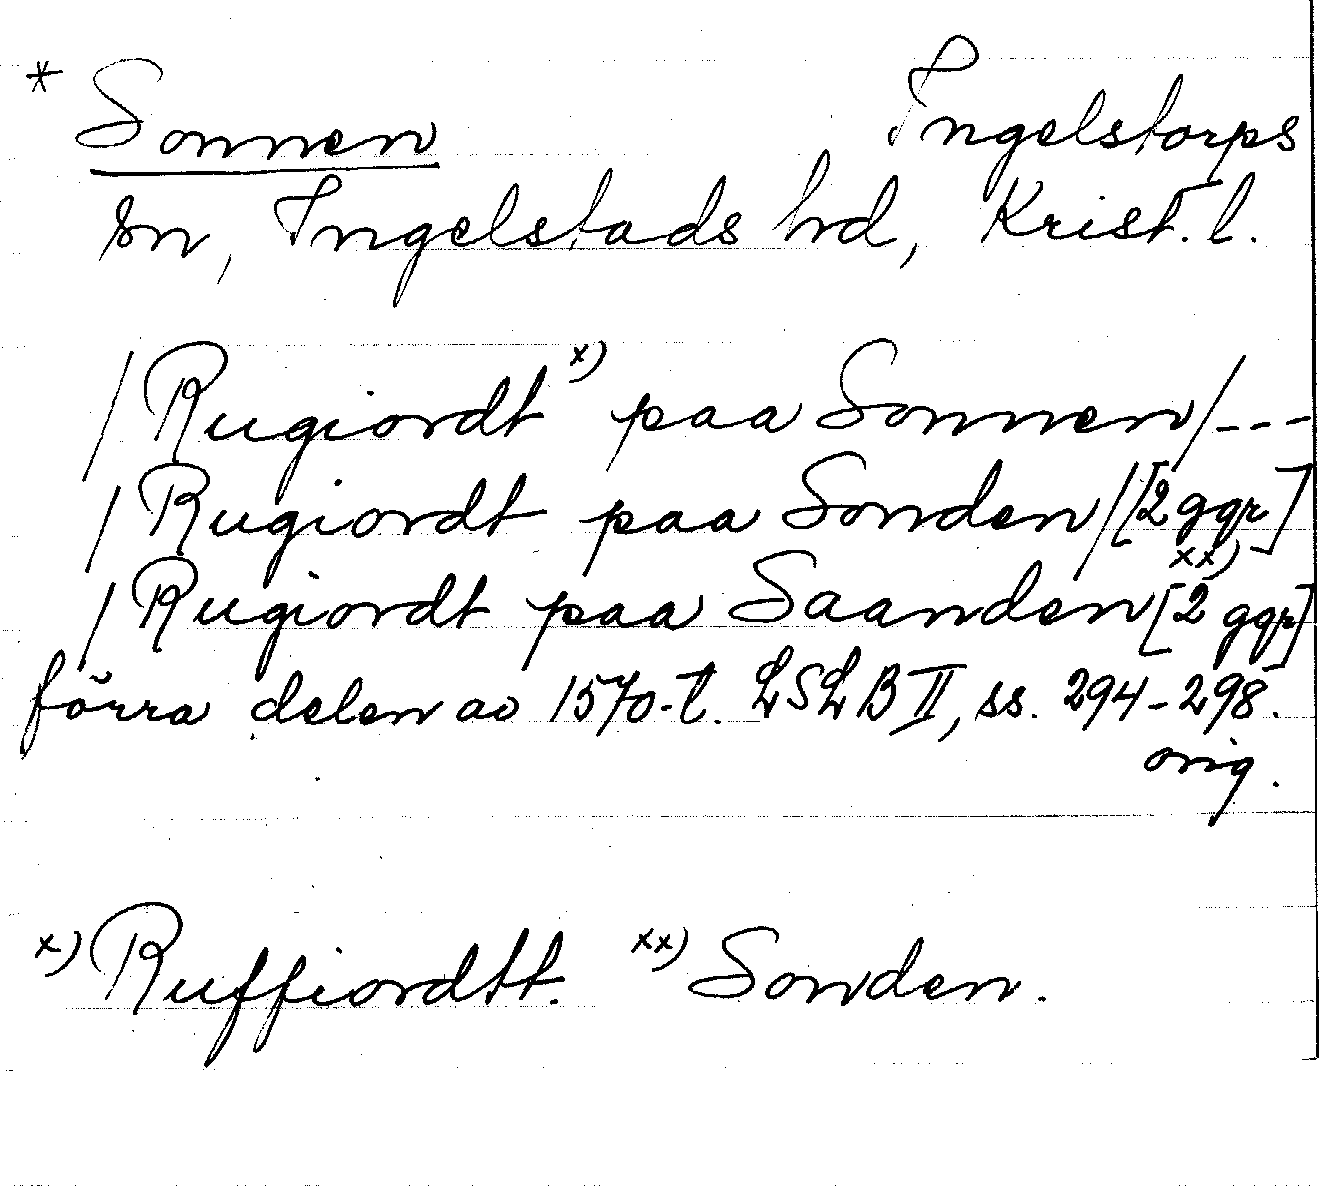 * Sonnen Ingelstorps
sn, Ingelstads hd, Krist. l.
/Rugiordt x) paa Sonnen/---
/Rugiordt paa Sonden/[2 ggr]
/Rugiordt paa Saanden xx) [2 ggr]
förra delen av 1570-t. LSLB II, ss. 294-298.
orig.
x) Ruffiordtt. xx) Sonden.